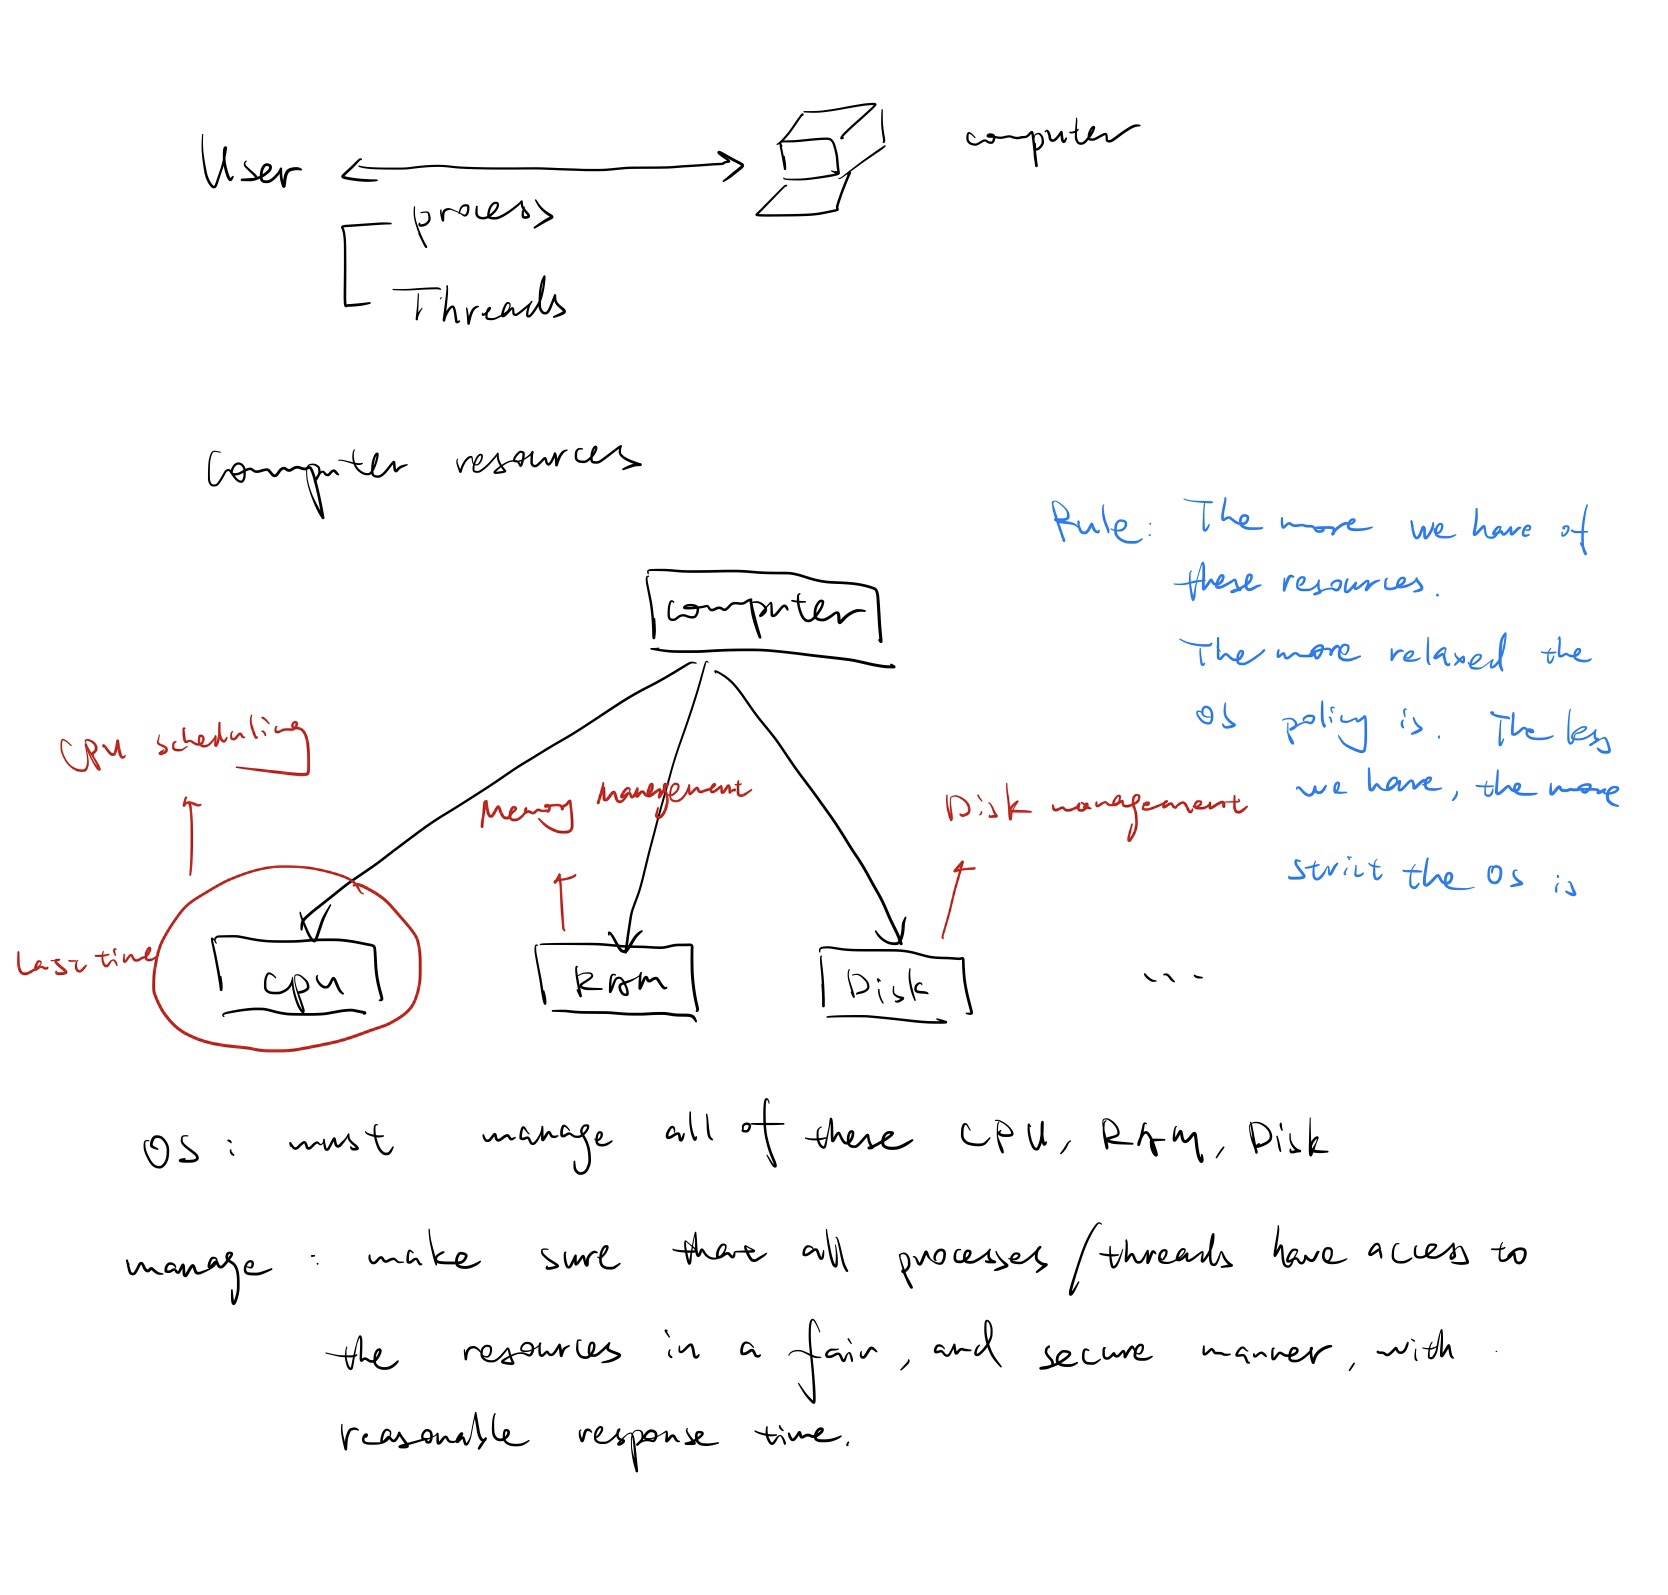 User
computer
process
Threads
Computer resources
Rule: The more we have of
these resources.
The more relaxed the
OS policy is. The less
we have, the more
strict the OS is
computer
CPU scheduling
Memory Management
Disk management
Last time
cpu
RAM
Disk
...
OS: must manage all of these CPU, RAM, Disk
manage: make sure that all processes/threads have access to
the resources in a fair, and secure manner, with
reasonable response time.